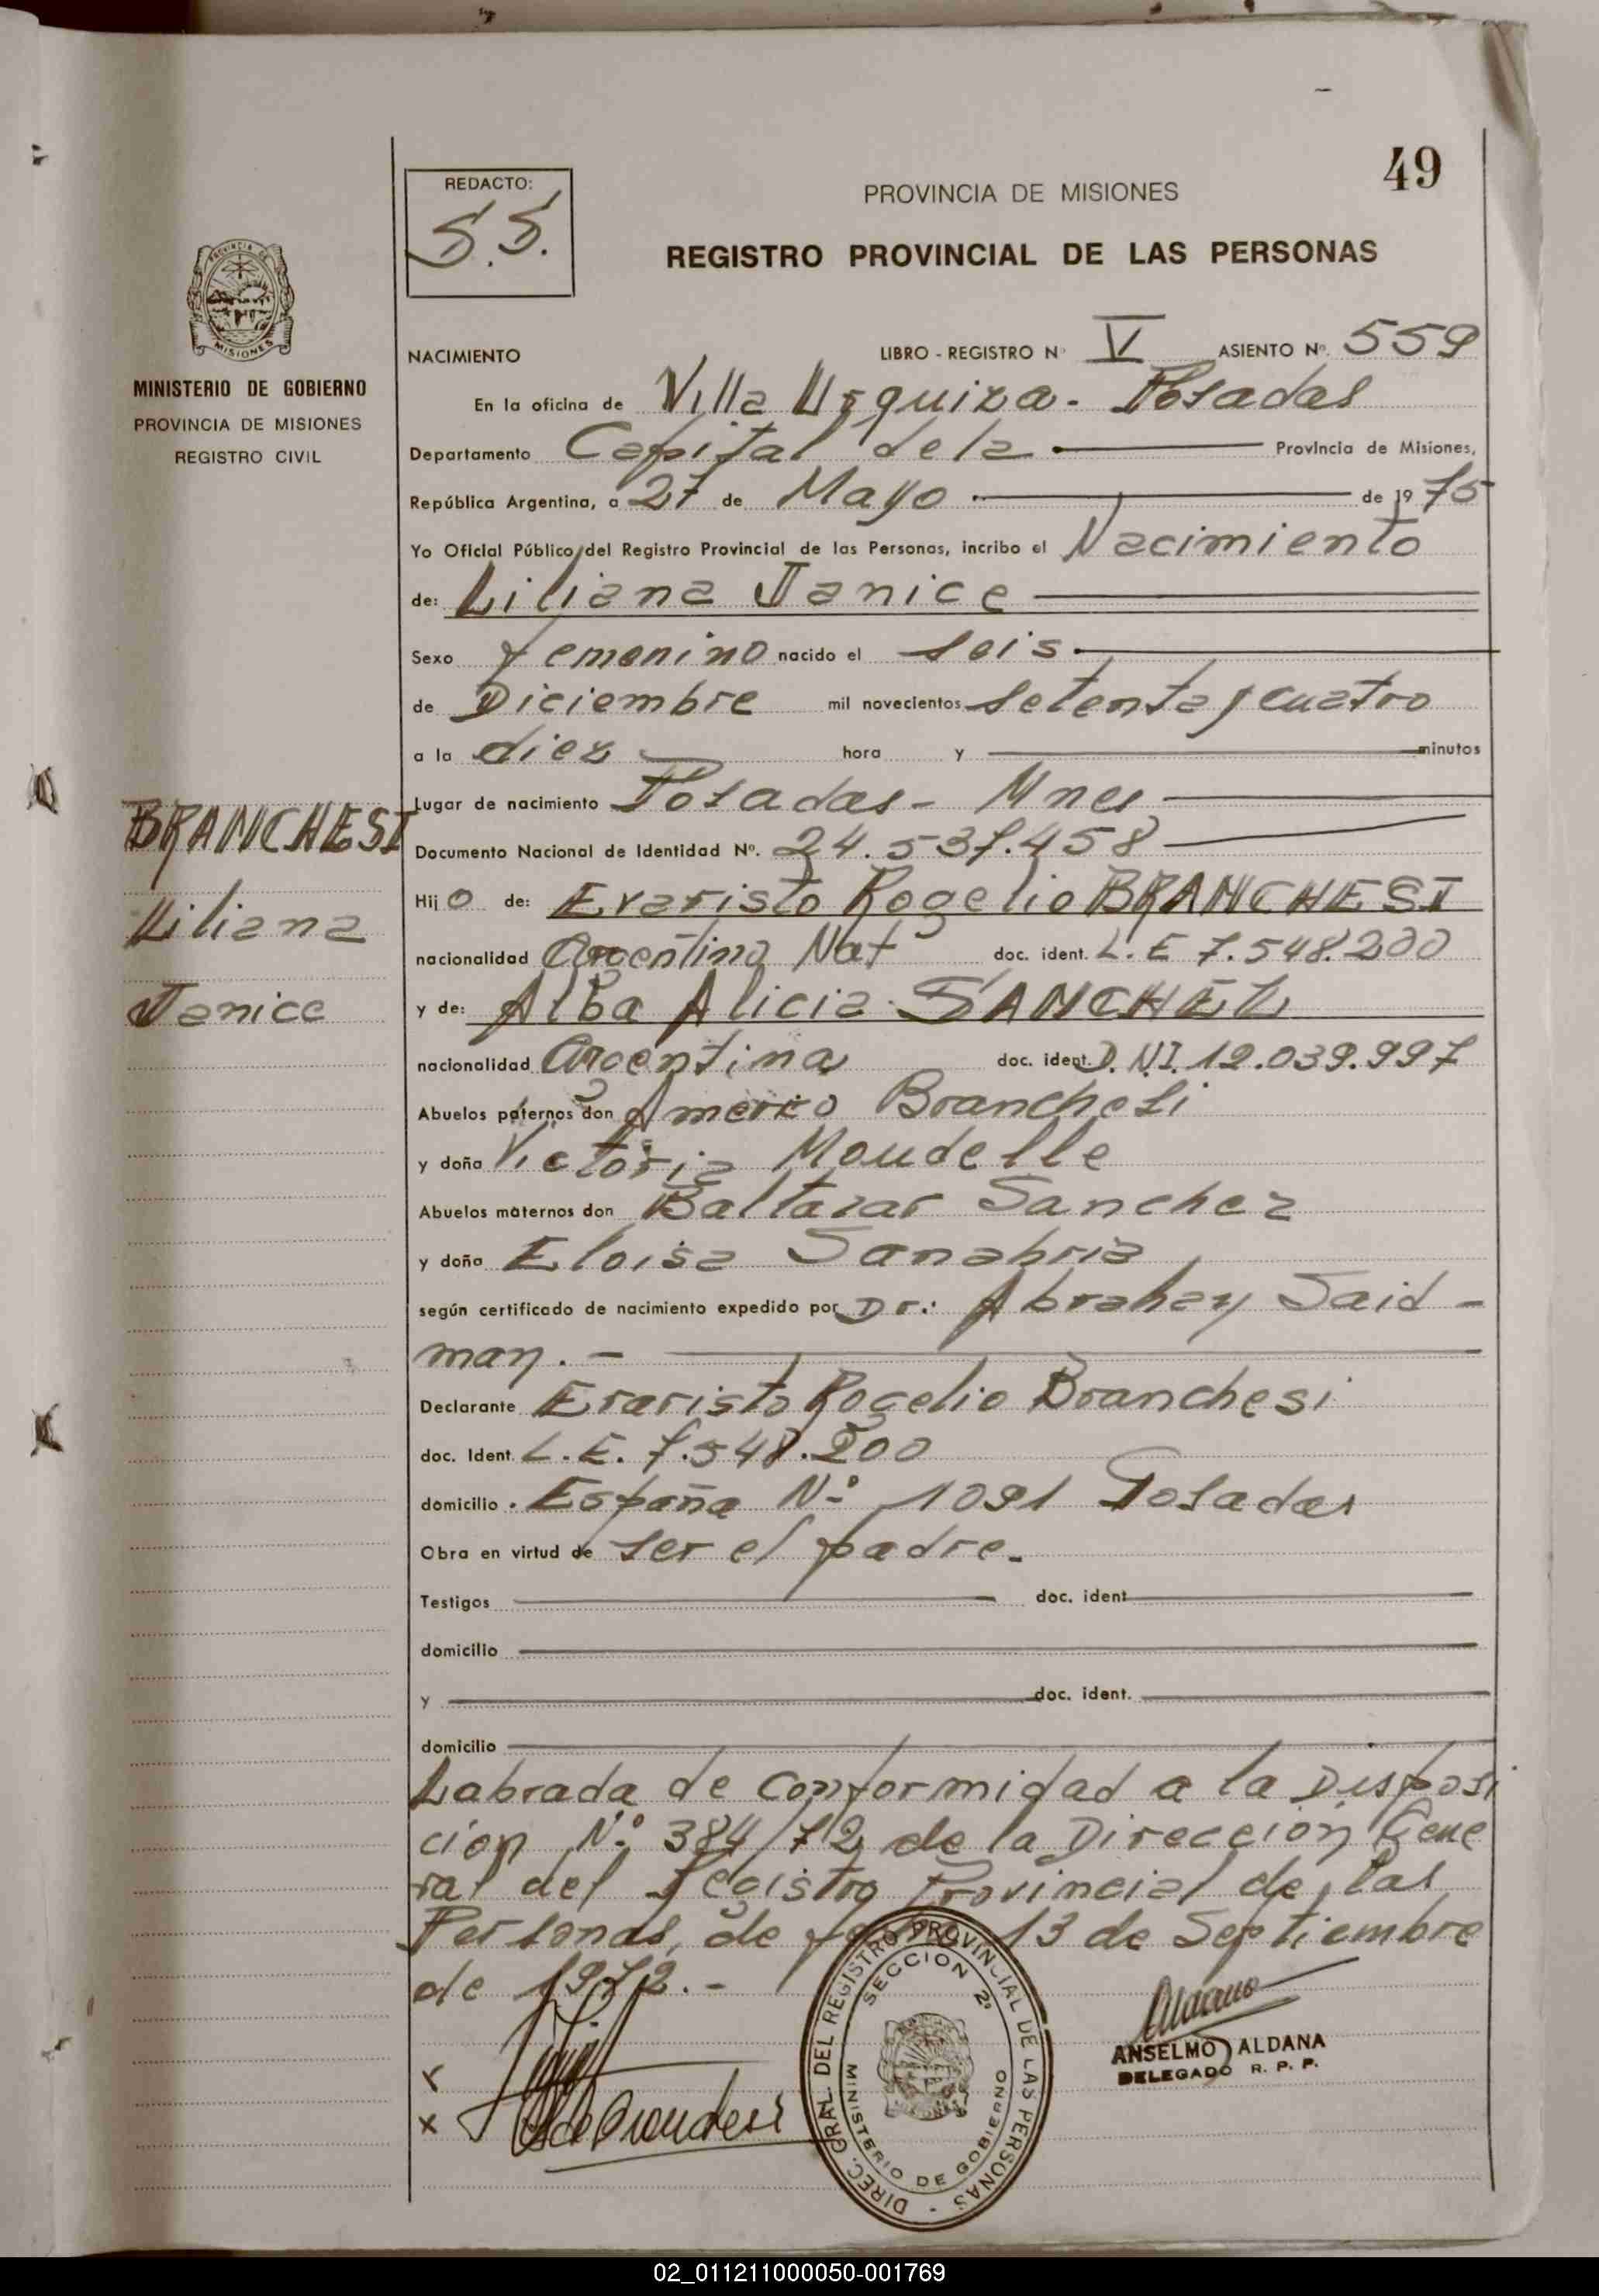 49
REDACTO:
S.S.
PROVINCIA DE MISIONES
REGISTRO PROVINCIAL DE LAS PERSONAS
PROVINCIA DE
MISIONES
MINISTERIO DE GOBIERNO
PROVINCIA DE MISIONES
REGISTRO CIVIL
NACIMIENTO LIBRO - REGISTRO Nº V ASIENTO Nº. 559
En la oficina de Villa Urquiza - Posadas
Departamento Capital de la Provincia de Misiones,
República Argentina, a 27 de Mayo de 1975
Yo Oficial Público del Registro Provincial de las Personas, incribo el Nacimiento
de: Liliana Janice
Sexo femenino nacido el seis
de Diciembre mil novecientos setenta y cuatro
a la diez hora y minutos
Lugar de nacimiento Posadas - Mnes
Documento Nacional de Identidad Nº. 24.537.458
Hijo de: Evaristo Rogelio BRANCHESI
nacionalidad Argentina Nat doc. ident. L.E 7.548.200
y de: Alba Alicia SANCHEZ
nacionalidad Argentina doc. ident. D.N.I. 12.039.997
Abuelos paternos don Americo Branchesi
y doña Victoria Moudelle
Abuelos maternos don Baltazar Sanchez
y doña Eloisa Sanabria
según certificado de nacimiento expedido por Dr.: Abrahan Said-
man. -
Declarante Evaristo Rogelio Branchesi
doc. Ident. L.E. 7.548.200
domicilio España Nº 1091 Posadas
Obra en virtud de ser el padre.
Testigos doc. ident
domicilio
y doc. ident.
domicilio
Labrada de conformidad a la Disposi
cion Nº 384/72 de la Direccion Gene
ral del Registro Provincial de las
Personas, de fecha 13 de Septiembre
de 1972. -
BRANCHESI
Liliana
Janice
x
x
DIREC. GRAL. DEL REGISTRO PROVINCIAL DE LAS PERSONAS -
SECCION 2ª
MINISTERIO DE GOBIERNO
MISIONES
Aldana
ANSELMO ALDANA
DELEGADO R. P. P.
02_011211000050-001769